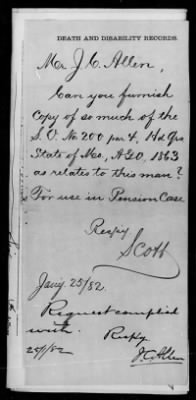 DEATH AND DISABILITY RECORDS.
Mr. J. C. Allen,
Can you furnish
copy of so much of the
S. O. No 200 par 4, Hd Qrs
State of Mo, AGO, 1863
as relates to this man?
For use in Pension Case
Respy.
Scott
Jany 25/82.
Request complied
with. Respy
25/1/82
J.C. Allen